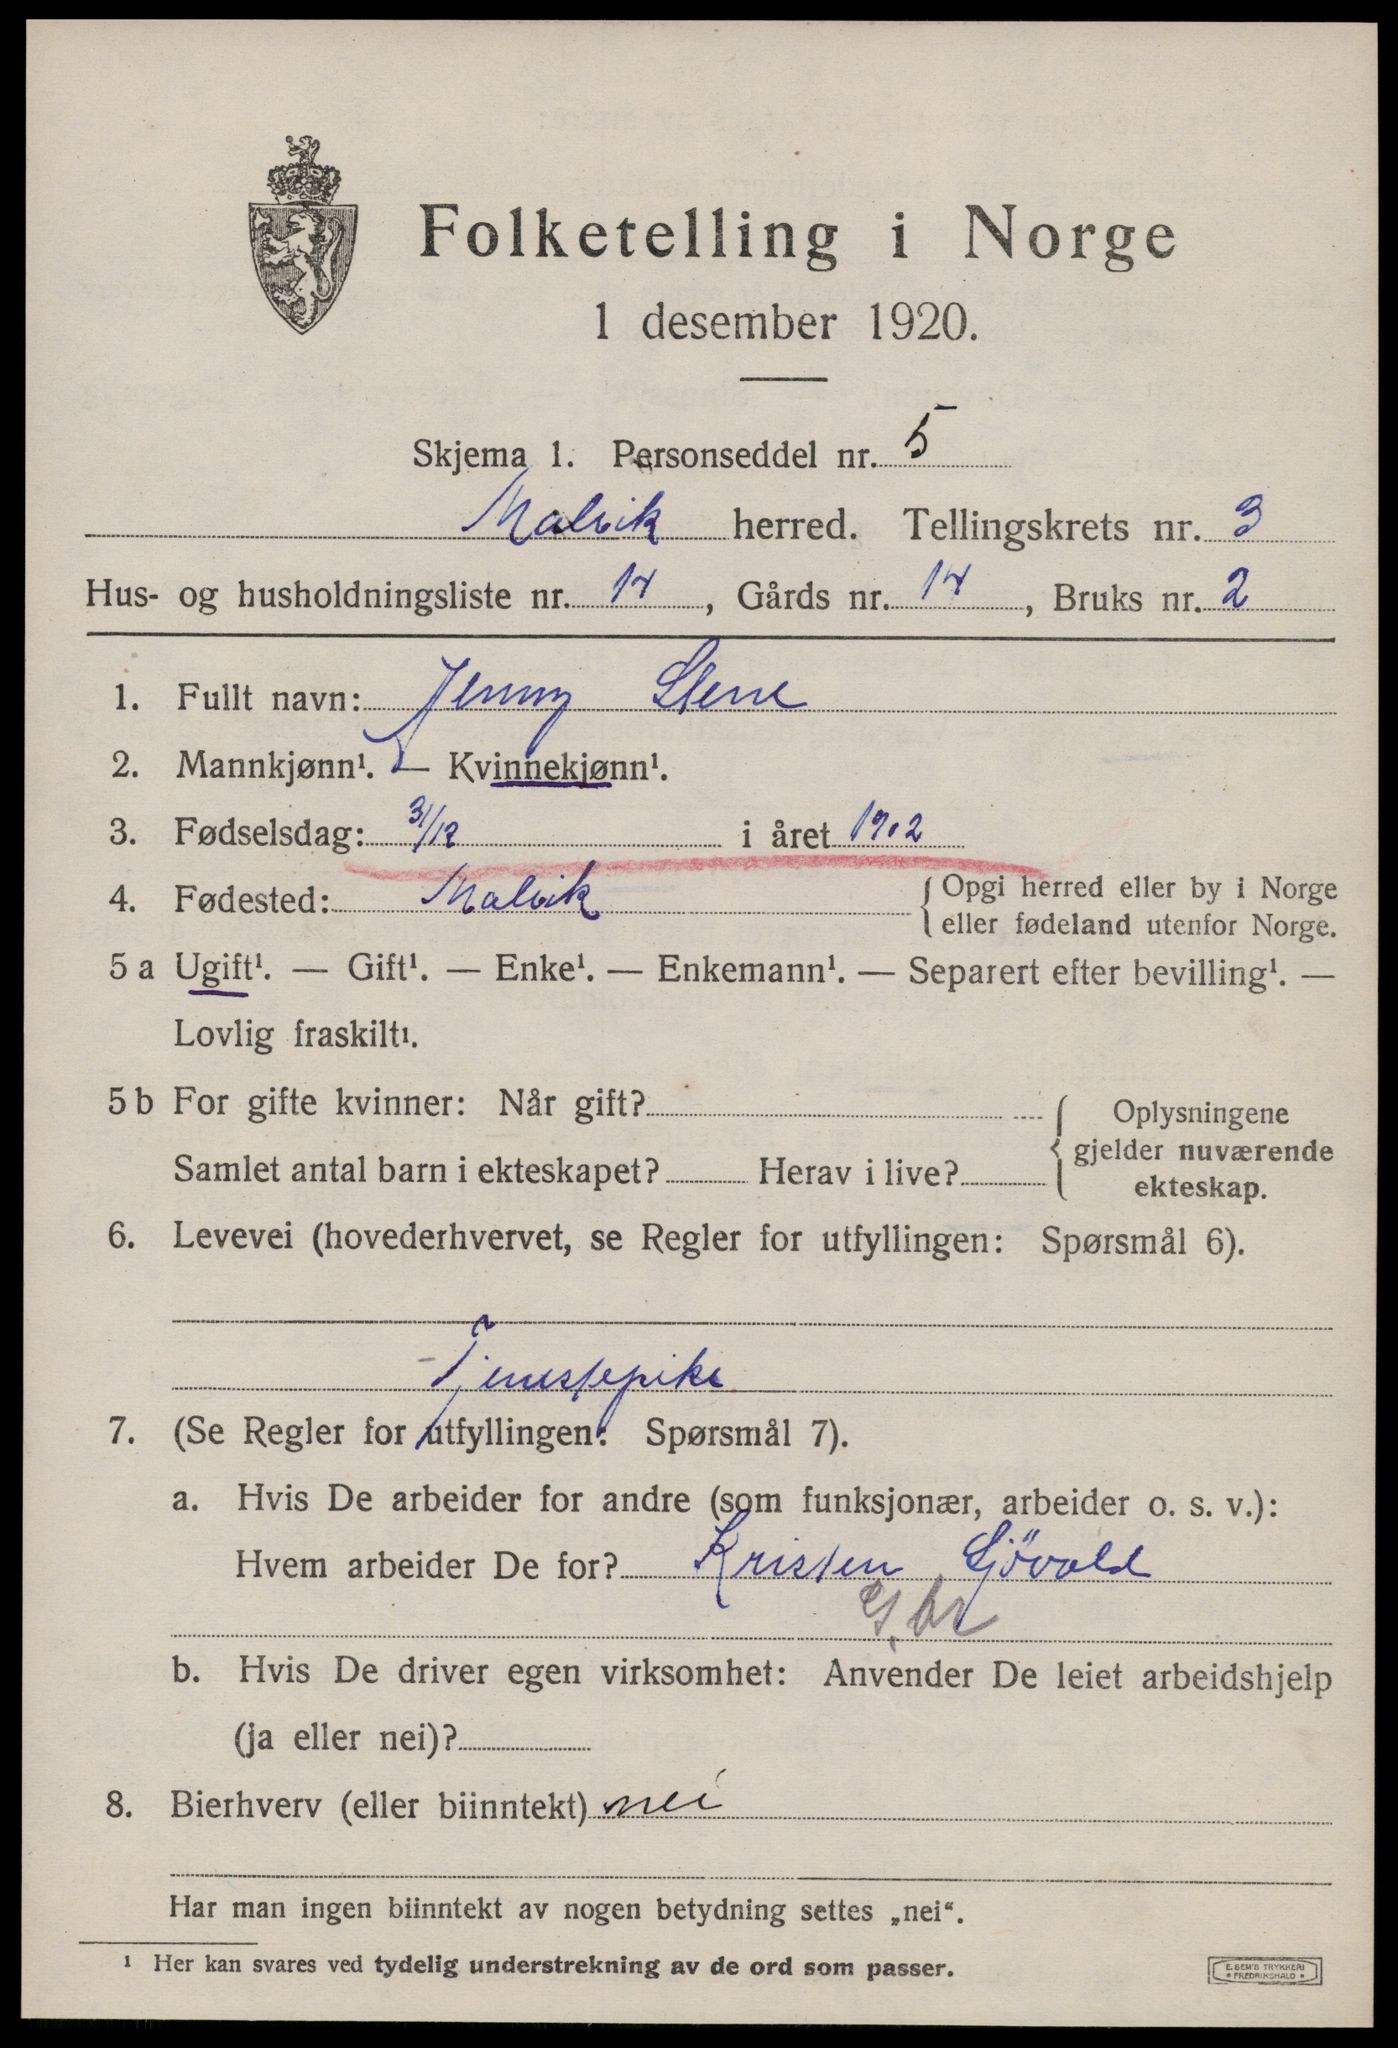 Folketelling i Norge
1 desember 1920.
Skjema 1. Personseddel nr. 5
Malvik herred. Tellingskrets nr. 3
Hus- og husholdningsliste nr. 14, Gårds nr. 14, Bruks nr. 2
1. Fullt navn: Jenny Stene
2. Mannkjønn¹. — Kvinnekjønn¹.
3. Fødselsdag: 31/12 i året 1902
4. Fødested: Malvik { Opgi herred eller by i Norge
eller fødeland utenfor Norge.
5 a Ugift¹. — Gift¹. — Enke¹. — Enkemann¹. — Separert efter bevilling¹. —
Lovlig fraskilt¹.
5 b For gifte kvinner: Når gift? { Oplysningene
gjelder nuværende
Samlet antal barn i ekteskapet? Herav i live?
ekteskap.
6. Levevei (hovederhvervet, se Regler for utfyllingen: Spørsmål 6).
Tjenestepike
7. (Se Regler for utfyllingen: Spørsmål 7).
a. Hvis De arbeider for andre (som funksjonær, arbeider o. s. v.):
Hvem arbeider De for? Kristen Sjövold
b. Hvis De driver egen virksomhet: Anvender De leiet arbeidshjelp
(ja eller nei)?
8. Bierhverv (eller biinntekt) nei
Har man ingen biinntekt av nogen betydning settes „nei“.
¹ Her kan svares ved tydelig understrekning av de ord som passer.
E. SEM'S TRYKKERI
* FREDRIKSHALD *